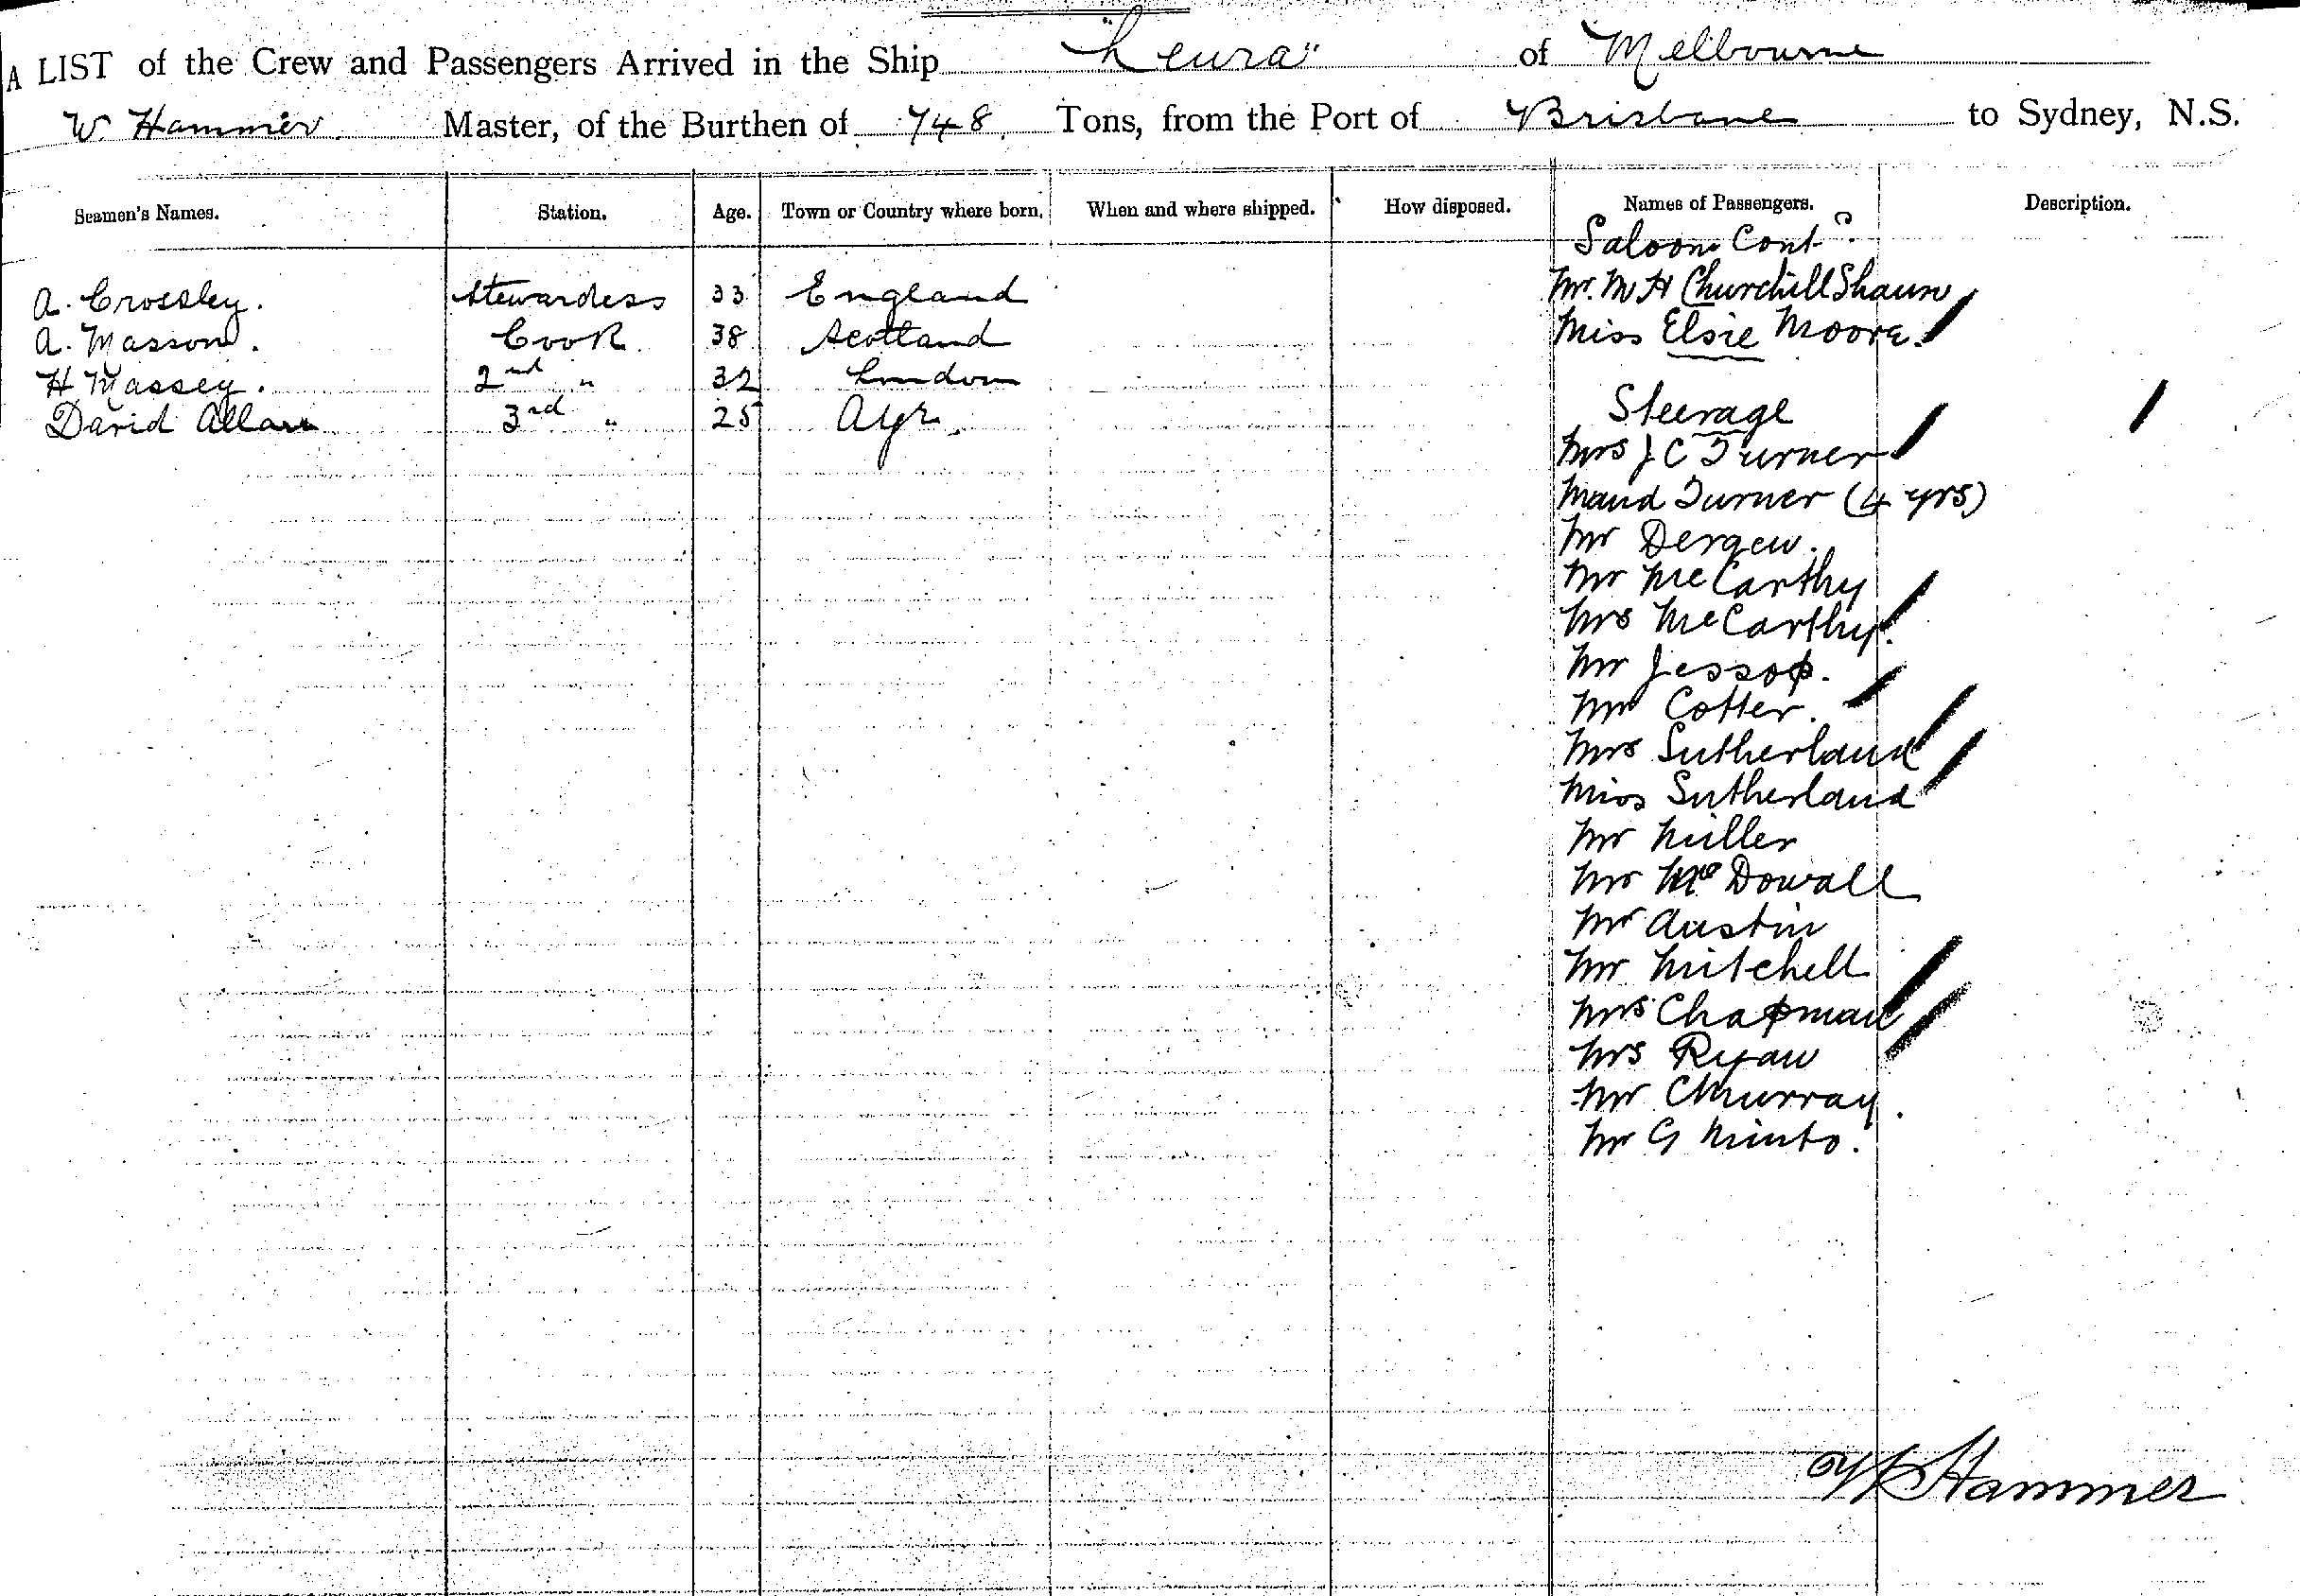 A LIST of the Crew and Passengers Arrived in the Ship "Leura" of Melbourne
W. Hammer Master, of the Burthen of 748 Tons, from the Port of Brisbane to Sydney, N.S.
Seamen's Names. Station. Age. Town or Country where born. When and where shipped. How disposed. Names of Passengers. Description.
Saloon Contd.
A. Crossley. Stewardess 33 England Mr. M H Churchill Shann
A. Masson. Cook. 38 Scotland Miss Elsie Moore.
H Massey. 2nd " 32 London
David Allan 3rd " 25 Ayr. Steerage
Mrs J C Turner
Maud Turner (4 yrs)
Mr Dergew.
Mr McCarthy
Mrs McCarthy.
Mr Jessop.
Mr Cotter.
Mrs Sutherland
Miss Sutherland
Mr Miller
Mr McDowall
Mr Austin
Mr Mitchell
Mrs Chapman
Mrs Ryan
Mr C Murray.
Mr G Minto.
W Hammer